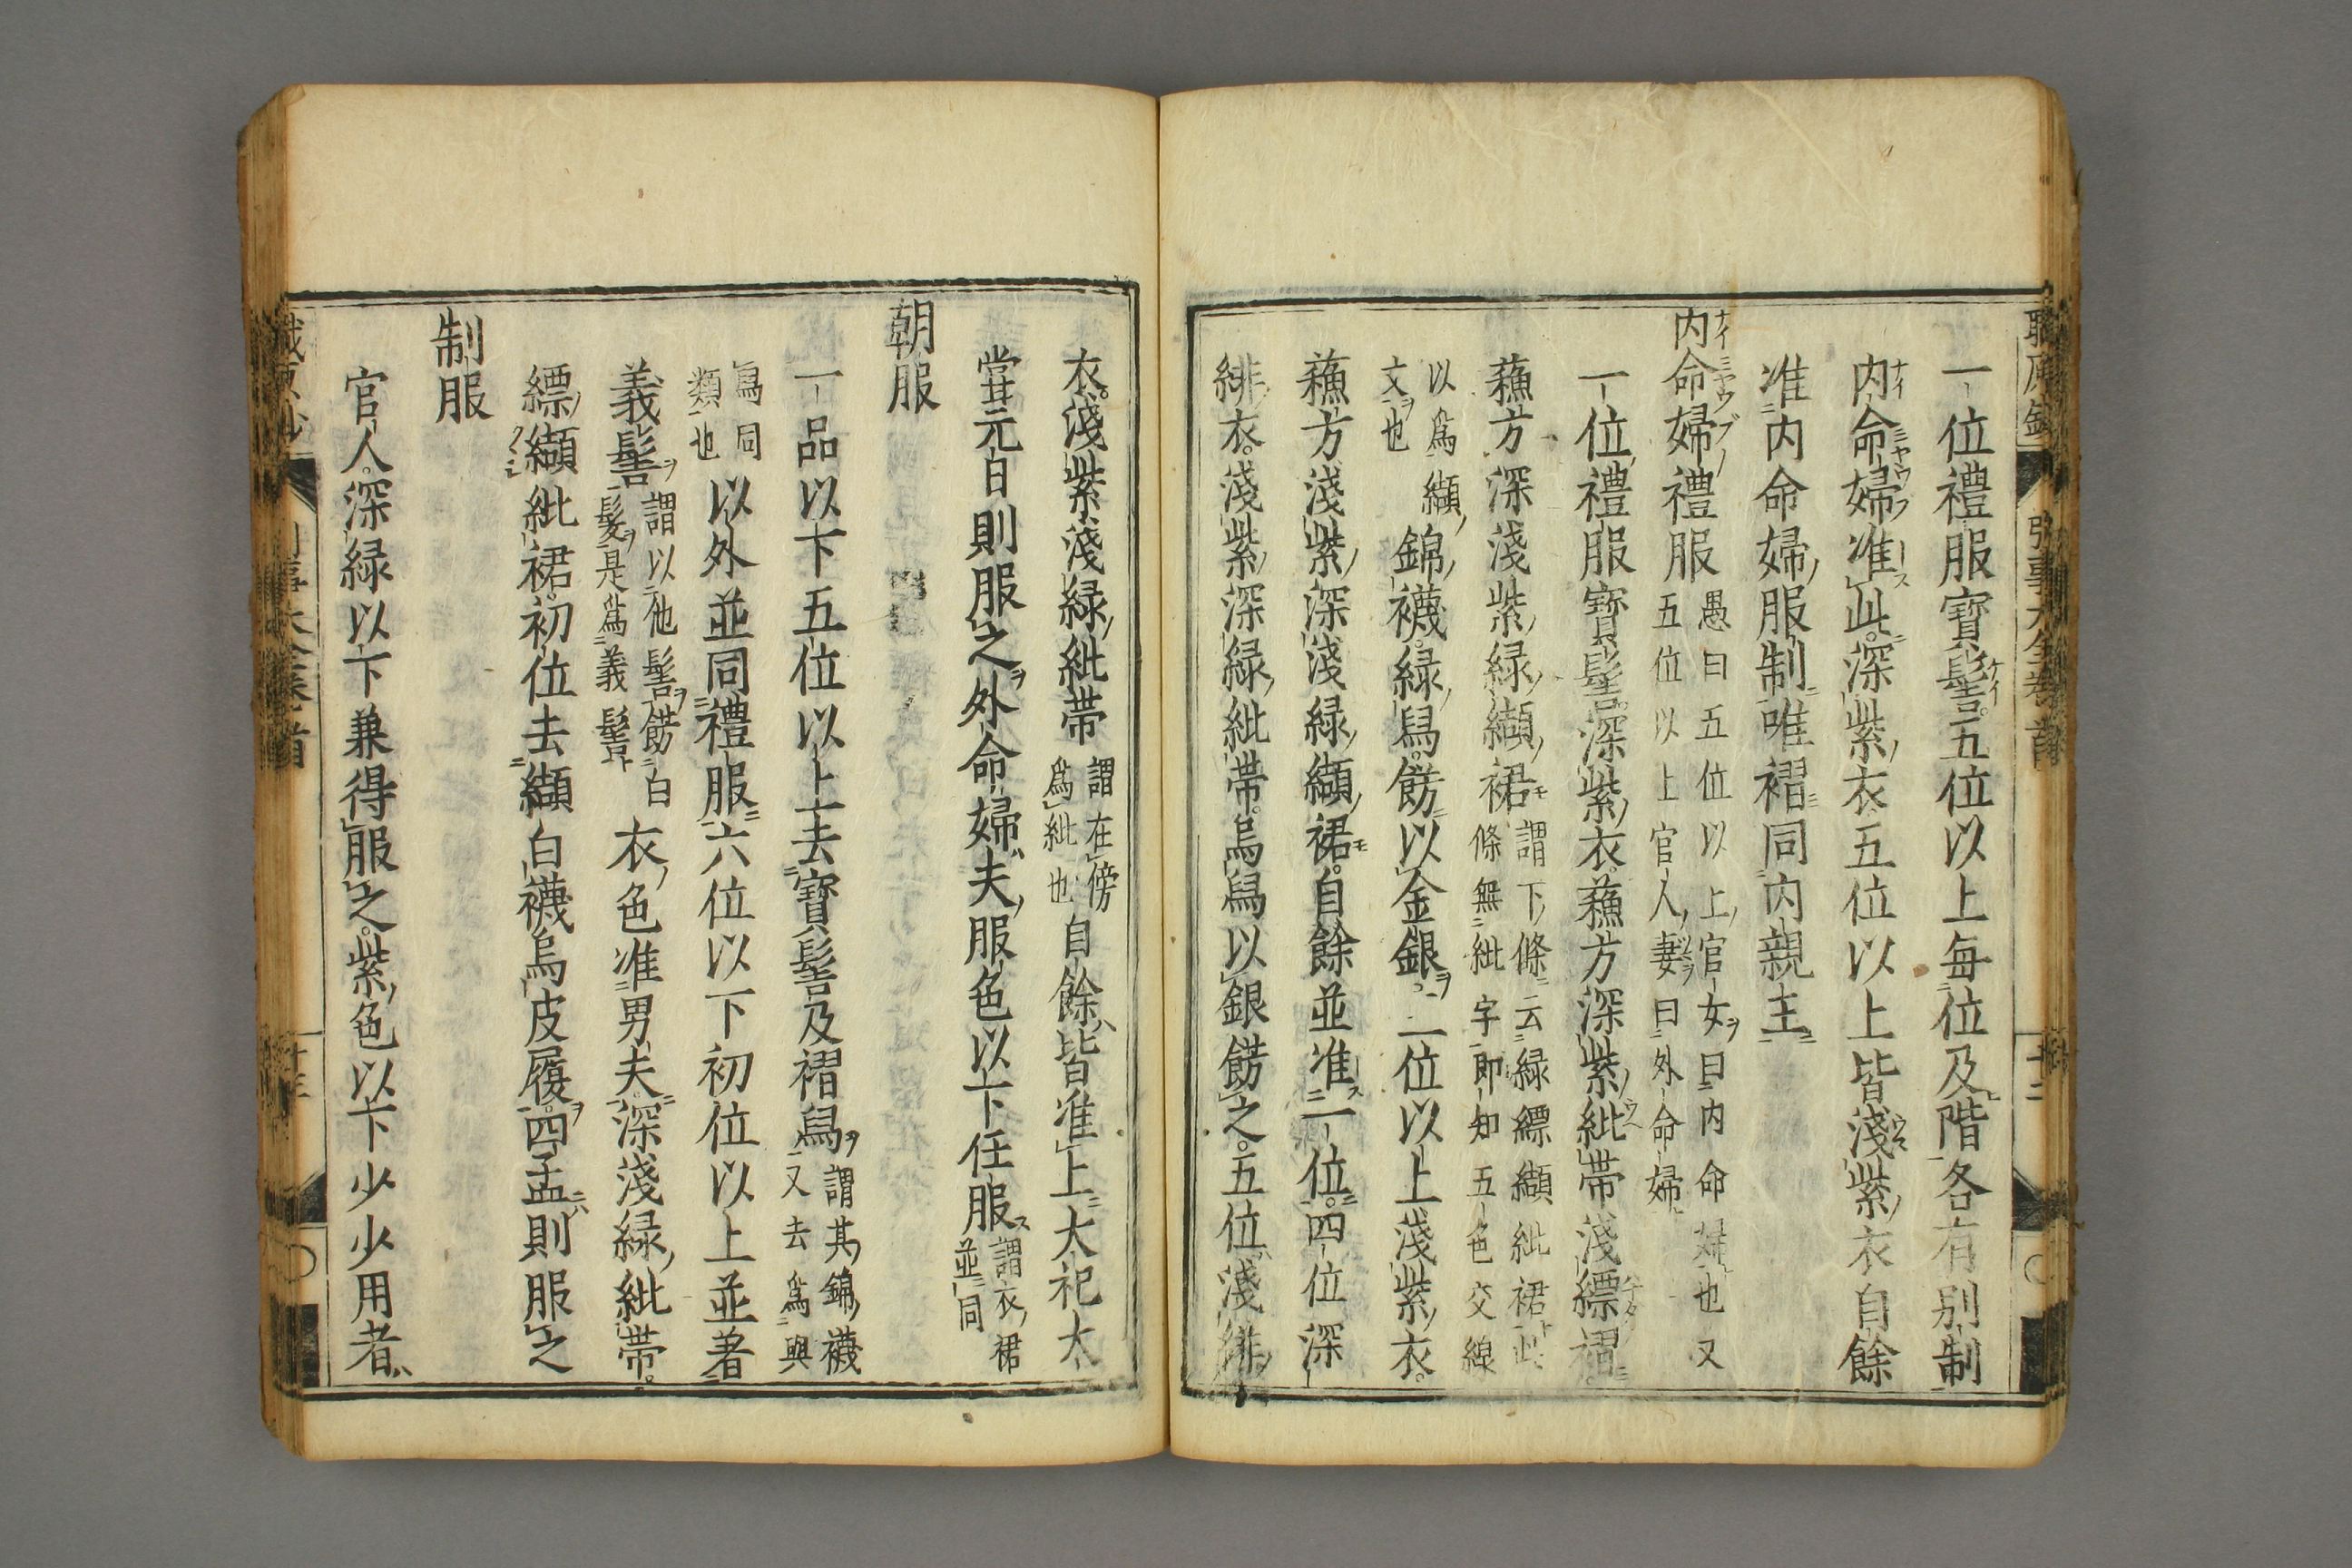 一位禮服寳髻五位以上毎位及階各有別制
内命婦准此深紫衣五位以上皆淺紫衣自餘
准内命婦服制唯褶同内親王
内命婦禮服愚曰五位以上官女曰内命婦也又
五位以上官人妻曰外命婦
一位禮服寳髻深紫衣蘓方深紫紕帯淺縹褶
蘓方深淺紫緑纈裙謂下條云緑縹纈紕裙此
條無紕字即知五色交線
以爲纈
文也
錦襪緑舄餝以金銀二位以上淺紫衣
蘓方淺紫深淺緑纈裙自餘並准一位四位深
緋衣淺紫深緑紕帯烏舄以銀餝之五位淺緋
衣淺紫淺緑紕帯謂在傍
爲紕也
自餘皆准上大祀大
甞元日則服之外命婦夫服色以下任服謂衣裙
並同
朝服
一品以下五位以上去寳髻及褶舄謂其錦襪
又去爲與
舄同
類也
以外並同禮服六位以下初位以上並著
義髻謂以他髻餝白
髮是爲義髻
衣色准男夫深淺緑紕帯
縹纈紕裙初位去纈白襪烏皮履四孟則服之
制服
官人深緑以下兼得服之紫色以下少少用者